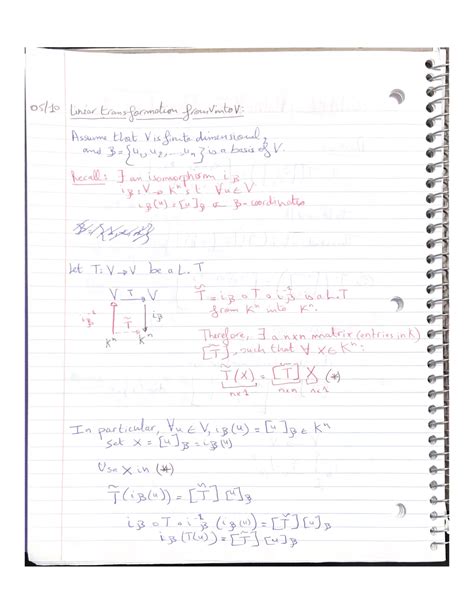 05/10 Linear transformation from V into V:
Assume that V is finite dimensional,
and B = {u₁, u₂, ..., uₙ} is a basis of V.
Recall: ∃ an isomorphism i_B
i_B: V → Kⁿ s.t ∀ u ∈ V
i_B(u) = [u]_B ← B-coordinates
let T: V → V be a L.T
V T→ V
i_B⁻¹ ↑ ↓ i_B
Kⁿ T̃→ Kⁿ
T̃ = i_B ∘ T ∘ i_B⁻¹ is a L.T
from Kⁿ into Kⁿ.
Therefore, ∃ a n×n matrix (entries in K)
[T̃], such that ∀ X ∈ Kⁿ:
T̃(X) = [T̃] X (*)
n×1 n×n n×1
In particular, ∀ u ∈ V, i_B(u) = [u]_B ∈ Kⁿ
set X = [u]_B = i_B(u)
X in (*)
T̃(i_B(u)) = [T̃] [u]_B
i_B ∘ T ∘ i_B⁻¹ (i_B(u)) = [T̃] [u]_B
i_B(T(u)) = [T̃] [u]_B